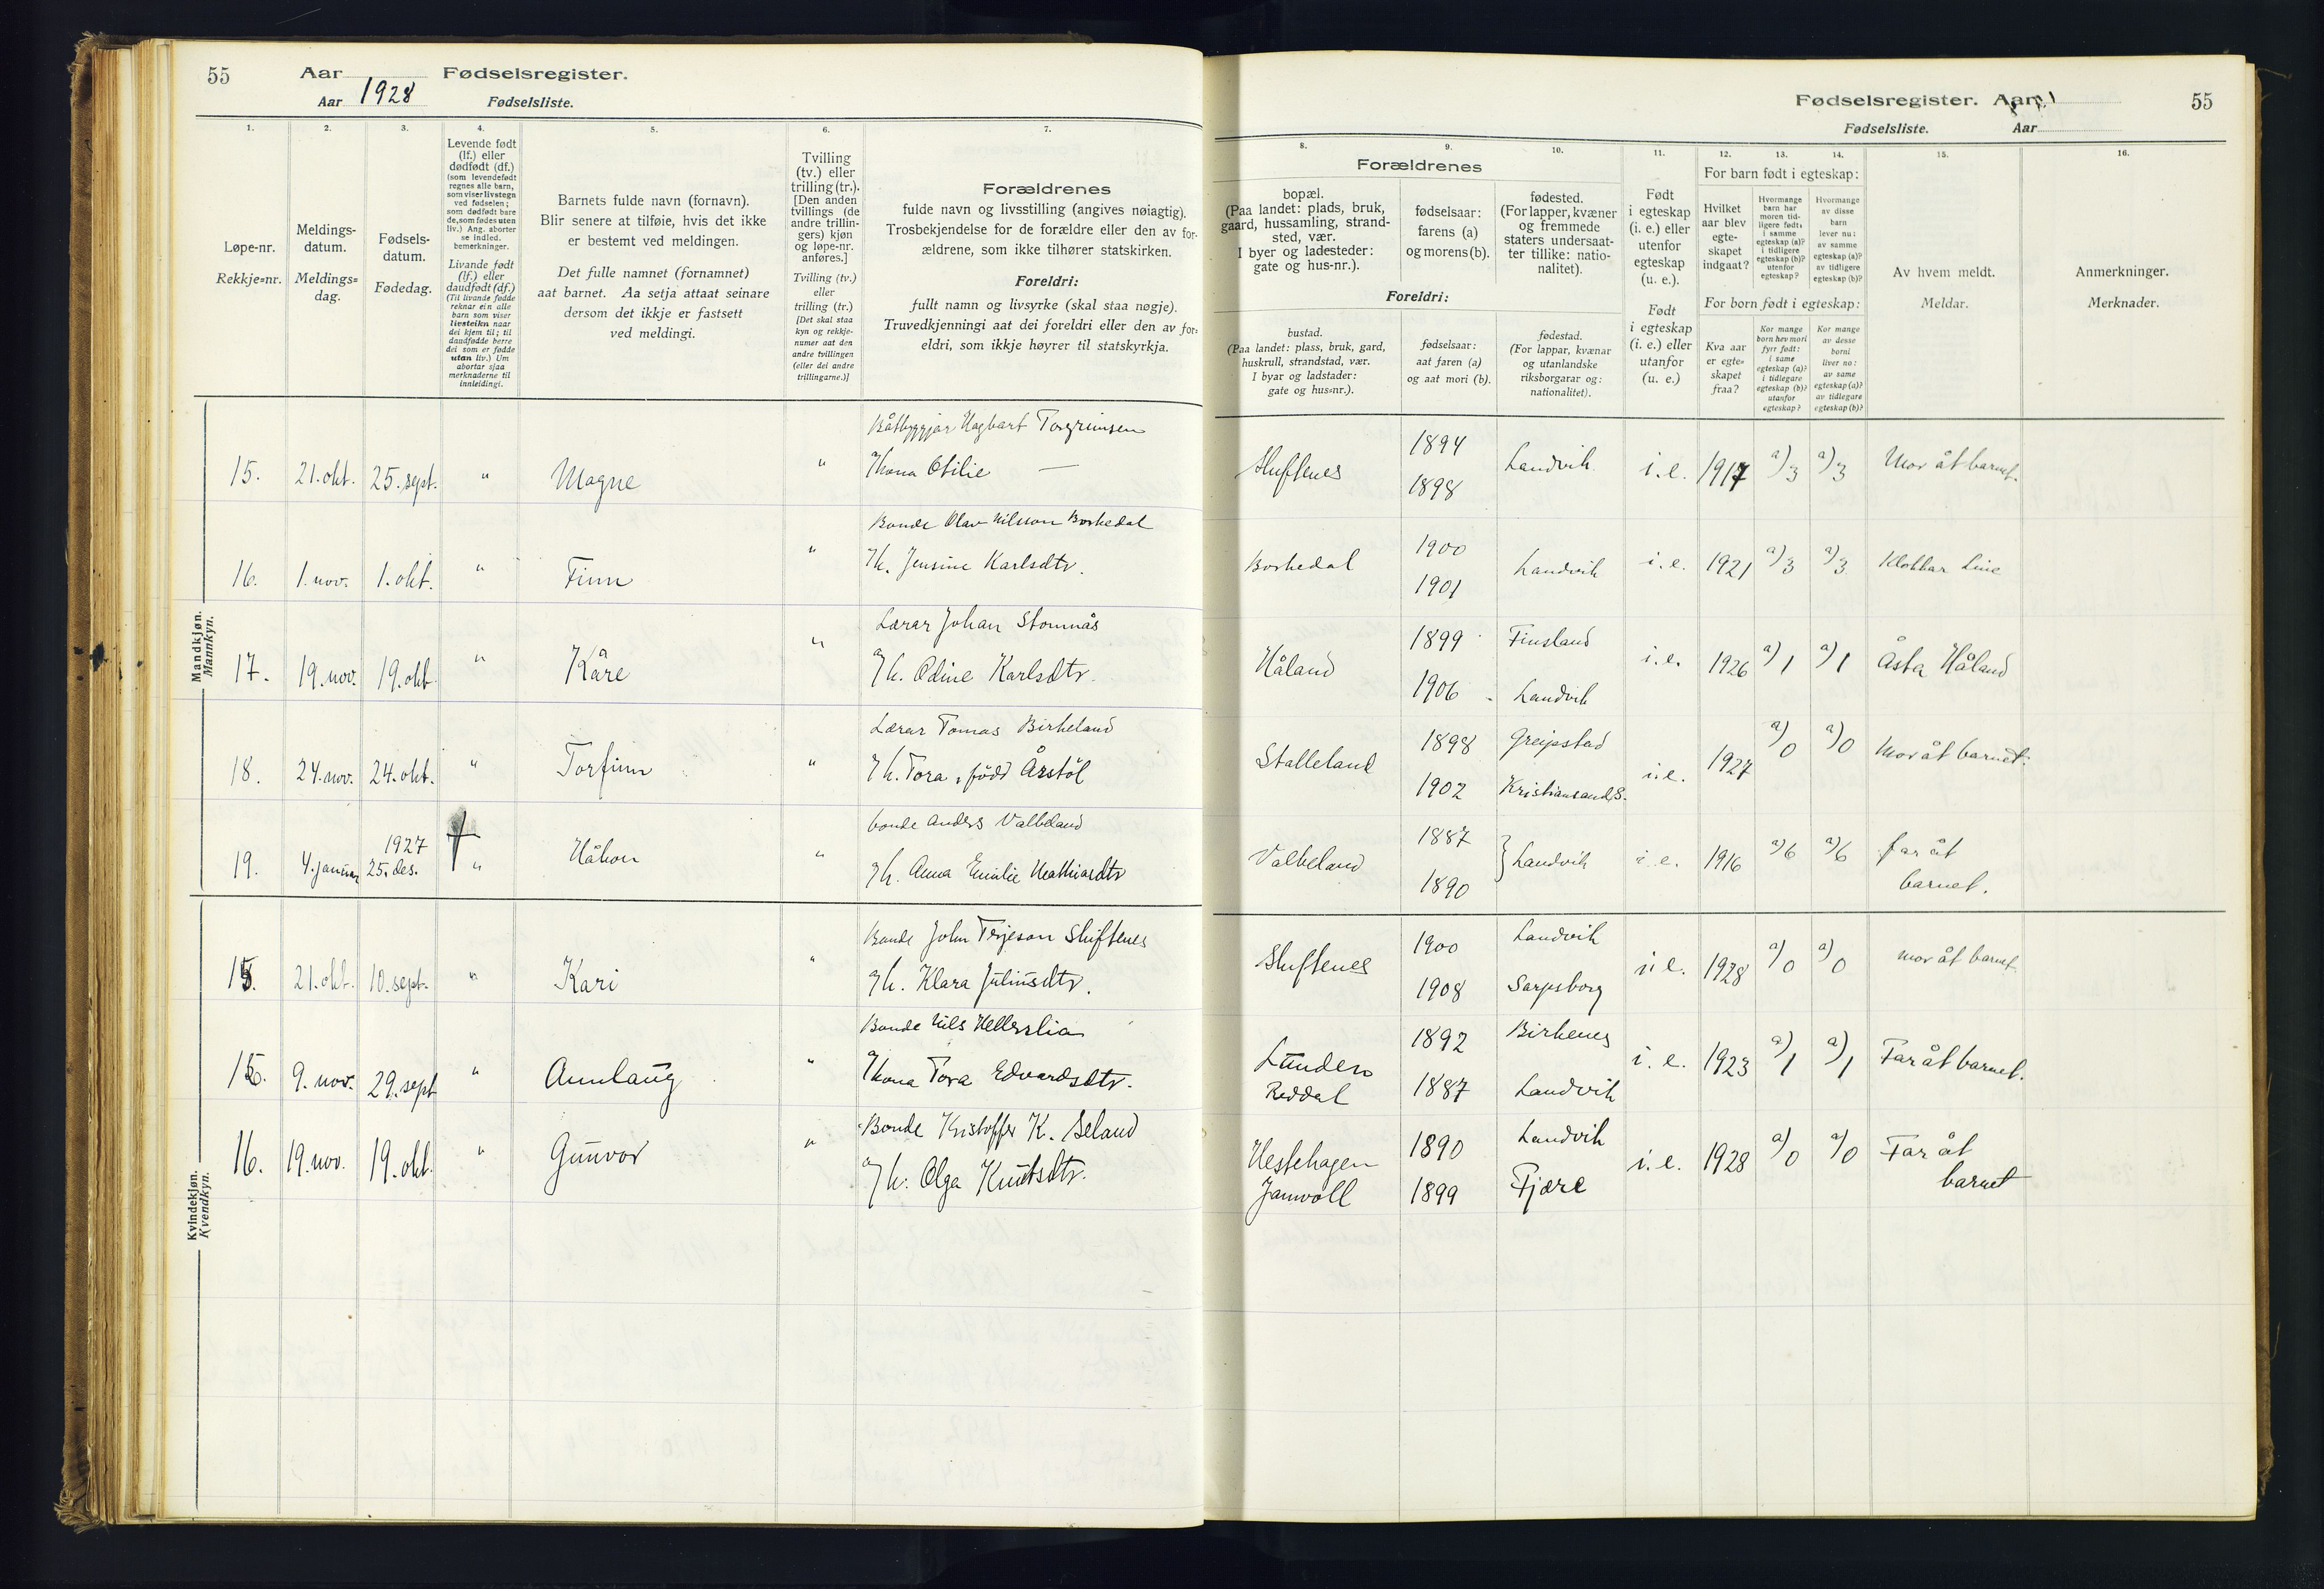 55 Aar Fødselsregister.
Aar 1928 Fødselsliste.
1. 2. 3. 4. 5. 6. 7.
Løpe-nr.
Rekkje=nr.
Meldings-
datum.
Meldings=
dag.
Fødsels-
datum.
Fødedag.
Levende født
(lf.) eller
dødfødt (df.)
(som levendefødt
regnes alle barn,
som viser livstegn
ved fødselen;
som dødfødt bare
de, som fødes uten
liv.) Ang. aborter
se indled.
bemerkninger.
Livande født
(lf.) eller
daudfødt (df.)
(Til livande fødde
reknar ein alle
barn som viser
livsteikn naar
dei kjem til; til
daudfødde berre
dei som er fødde
utan liv.) Um
abortar sjaa
merknaderne til
innleidingi.
Barnets fulde navn (fornavn).
Blir senere at tilføie, hvis det ikke
er bestemt ved meldingen.
Det fulle namnet (fornamnet)
aat barnet. Aa setja attaat seinare
dersom det ikkje er fastsett
ved meldingi.
Tvilling
(tv.) eller
trilling (tr.).
[Den anden
tvillings (de
andre trillin-
gers) kjøn
og løpe-nr.
anføres.]
Tvilling (tv.)
eller
trilling (tr.)
[Det skal staa
kyn og rekkje-
numer aat den
andre tvillingen
(eller dei andre
trillingarne.)]
Forældrenes
fulde navn og livsstilling (angives nøiagtig).
Trosbekjendelse for de forældre eller den av for-
ældrene, som ikke tilhører statskirken.
Foreldri:
fullt namn og livsyrke (skal staa nøgje).
Truvedkjenningi aat dei foreldri eller den av for=
eldri, som ikkje høyrer til statskyrkja.
Mandkjøn.
Mannkyn.
Båtbyggjar Hagbart Torgrimsen
15. 21. okt. 25. sept. " Magne " Kona Otilie —
Bonde Olav Nilsson Borkedal
16. 1. nov. 1. okt. " Finn " K. Jensine Karlsdtr.
Lærar Johan Stomnås
17. 19. nov. 19. okt. " Kåre " K. Odine Karlsdtr.
Lærar Tomas Birkeland
18. 24. nov. 24. okt. " Torfinn " K. Tora, født Årstøl
bonde Anders Valbeland
1927
19. 4. januar 25. des. † " Håkon " K. Anna Emilie
Kvindekjøn.
Kvendkyn.
Bonde John Terjeson Sluftenes
15. 21. okt. 10. sept. " Kari " K. Klara Juliusdtr.
Bonde Nils Hellerslia
15. 9. nov. 29. sept " Aunlaug " Kona Tora Edvardsdtr.
Bonde Kristoffer K. Seland
16. 19. nov. 19. okt. " Gunvor " K. Olga Knutsdtr.
Fødselsregister. Aar 55
Fødselsliste. Aar
8. 9. 10. 11. 12. 13. 14. 15. 16.
Forældrenes
bopæl.
(Paa landet: plads, bruk,
gaard, hussamling, strand-
sted, vær.
I byer og ladesteder:
gate og hus-nr.).
fødselsaar:
farens (a)
og morens (b).
fødested.
(For lapper, kvæner
og fremmede
staters undersaat-
ter tillike: natio-
nalitet).
Foreldri:
bustad.
(Paa landet: plass, bruk, gard,
huskrull, strandstad, vær.
I byar og ladstader:
gate og hus=nr.).
fødselsaar:
aat faren (a)
og aat mori (b).
fødestad.
(For lappar, kvænar
og utanlandske
riksborgarar og:
nationalitet).
Født
i egteskap
(i. e.) eller
utenfor
egteskap
(u. e.).
Født
i egteskap
(i. e.) eller
utanfor
(u. e.)
For barn født i egteskap:
Hvilket
aar blev
egte-
skapet
indgaat?
Hvormange
barn har
moren tid-
ligere født:
i samme
egteskap (a)?
i tidligere
egteskap (b)?
utenfor
egteskap?
Hvormange
av disse
barn
lever nu:
av samme
egteskap (a)?
av tidligere
egteskap (b)?
For born født i egteskap:
Kva aar
er egte=
skapet
fraa?
Kor mange
born hev mori
fyrr født:
i same
egteskap (a)?
i tidlegare
egteskap (b)?
utanfor
egteskap?
Kor mange
av desse
borni
liver no:
av same
egteskap (a)?
av tidlegare
egteskap (b)?
Av hvem meldt.
Meldar.
Anmerkninger.
Merknader.
1894
Sluftenes Landvik. i.e. 1917 a) 3 a) 3 Mor åt barnet.
1898
1900
Borkedal Landvik i.e. 1921 a) 3 a) 3 Klokkar Line
1901
1899 Finsland
Håland i.e. 1926 a) 1 a) 1 Åsta Håland
1906 Landvik
1898 Greipstad
Stalleland i.e. 1927 a) 0 a) 0 Mor åt barnet.
1902 Kristiansand S.
1887
Valbeland } Landvik i.e. 1916 a) 6 a) 6 far åt
1890 barnet.
1900 Landvik
Sluftenes i.e. 1928 a) 0 a) 0 mor åt barnet
1908 Sarpsborg
1892 Birkenes
Lunden i.e. 1923 a) 1 a) 1 Far åt barnet.
Reddal 1887 Landvik
1890 Landvik
Hestehagen i.e. 1928 a) 0 a) 0 Far åt
Jamvoll 1899 Fjære barnet